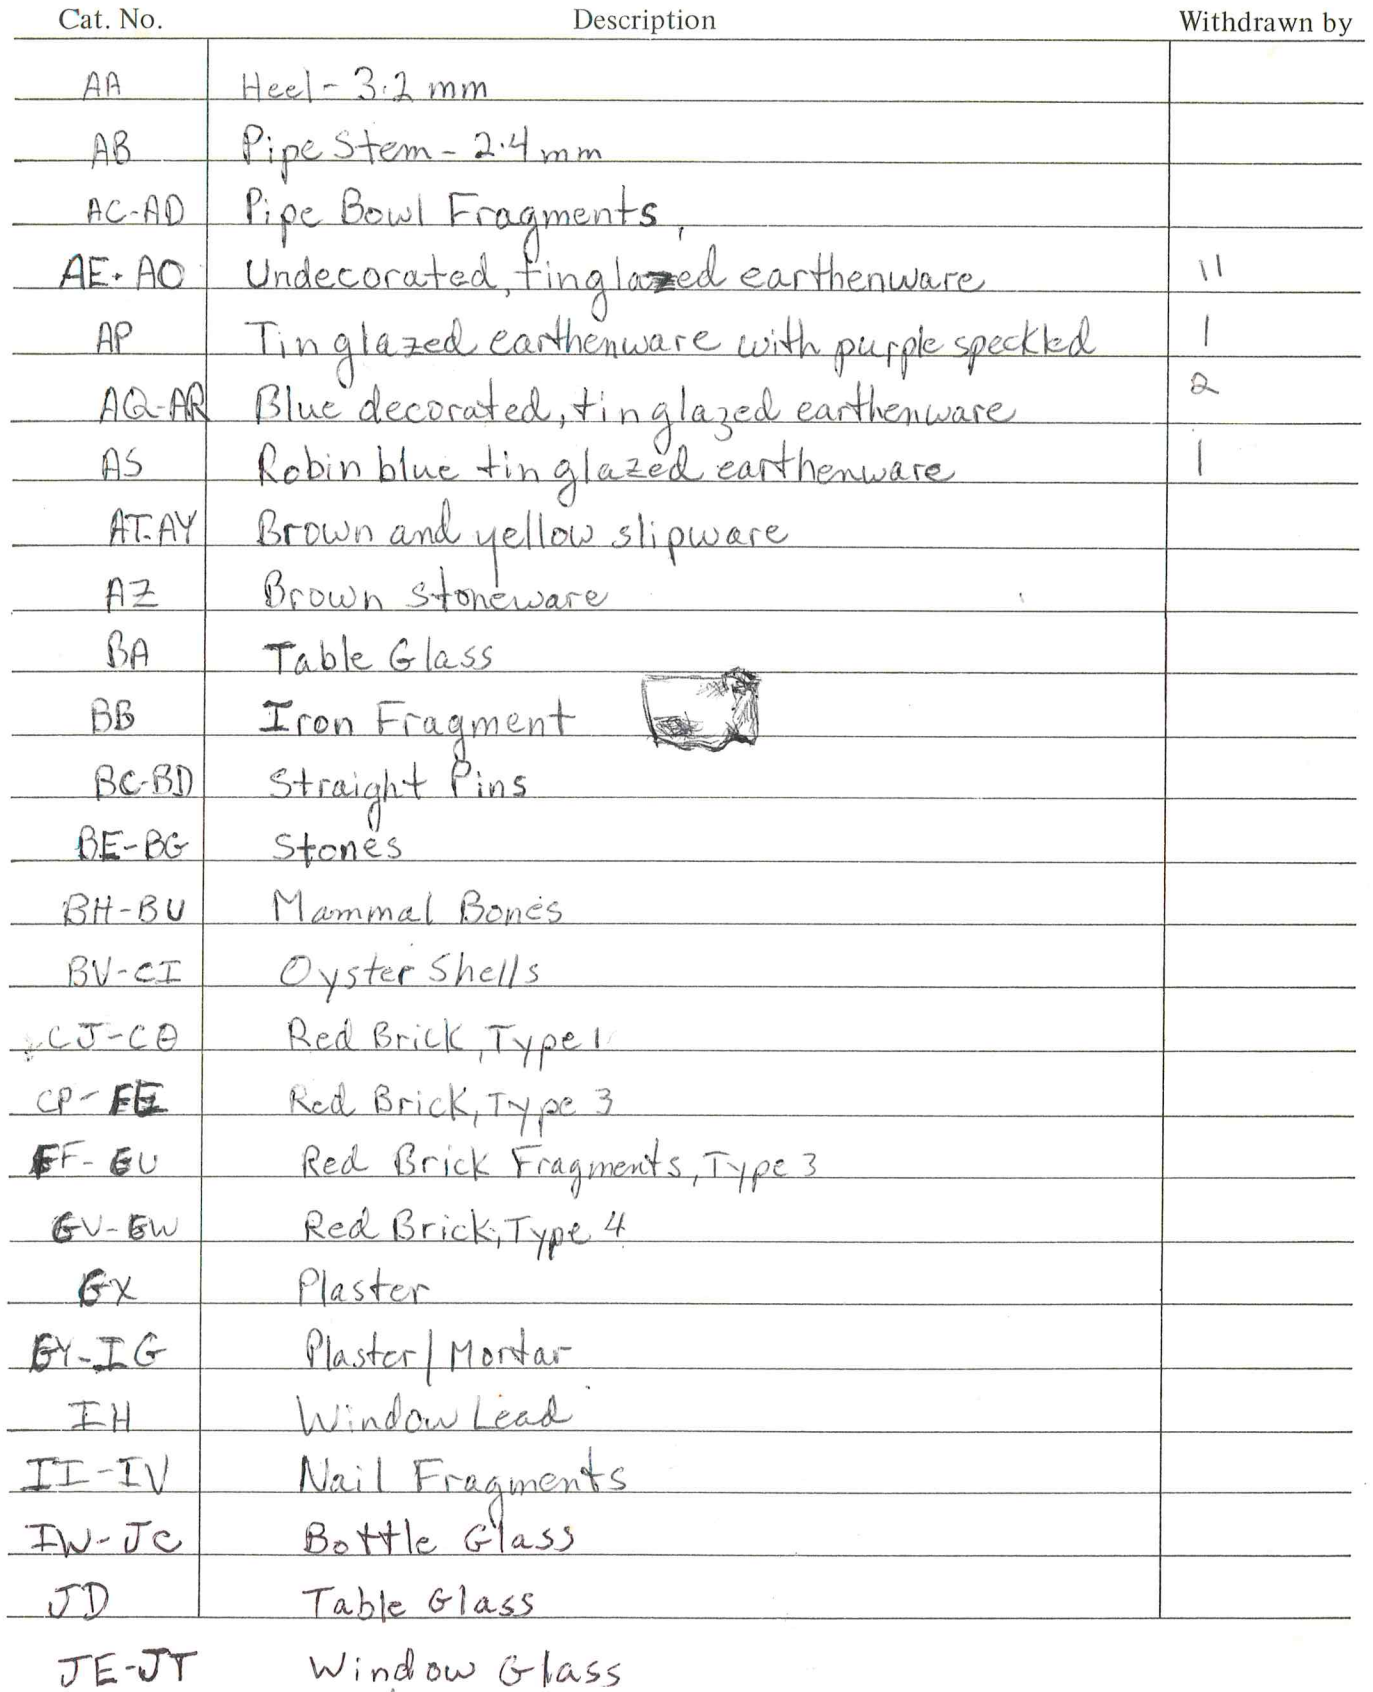 Cat. No. Description Withdrawn by
AA Heel - 3.2 mm
AB Pipe Stem - 2.4 mm
AC-AD Pipe Bowl Fragments,
AE-AO Undecorated, tin glazed earthenware 11
AP Tin glazed earthenware with purple speckled 1
AQ-AR Blue decorated, tin glazed earthenware 2
AS Robin blue tin glazed earthenware 1
AT-AY Brown and yellow slipware
AZ Brown stoneware
BA Table Glass
BB Iron Fragment
BC-BD Straight Pins
BE-BG Stones
BH-BU Mammal Bones
BV-CI Oyster Shells
CJ-CO Red Brick, Type 1
CP-EE Red Brick, Type 3
EF-GU Red Brick Fragments, Type 3
GV-GW Red Brick, Type 4
GX Plaster
GY-IG Plaster/Mortar
IH Window Lead
II-IV Nail Fragments
IW-JC Bottle Glass
JD Table Glass
JE-JT Window Glass